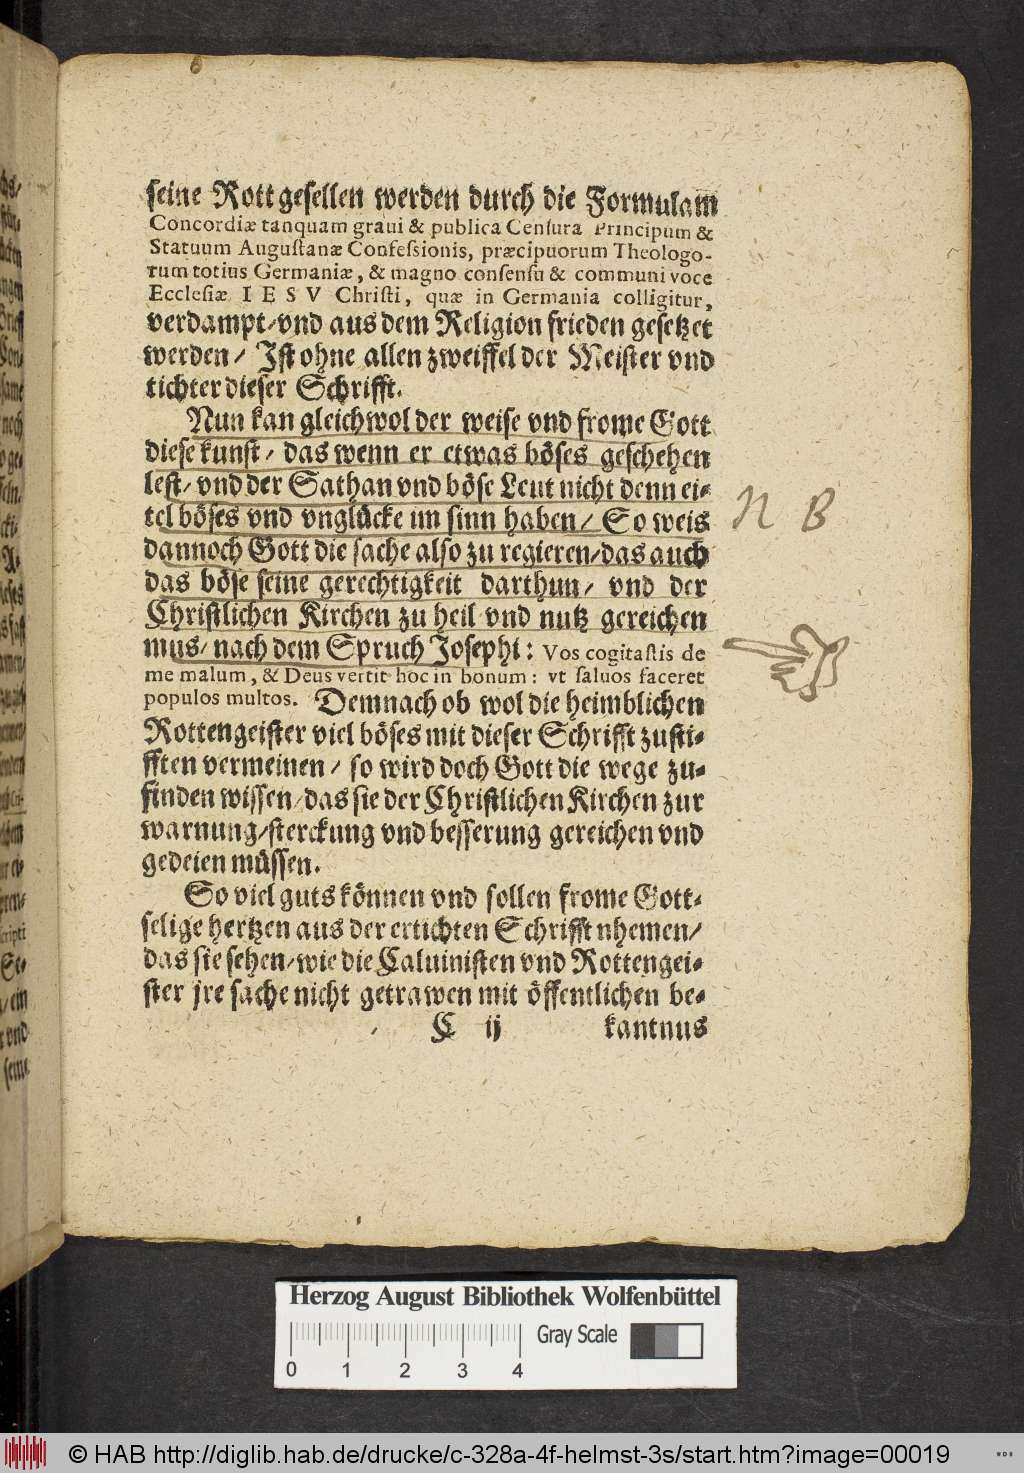 seine Rottgesellen werden durch die Formulam
Concordiæ tanquam graui & publica Censura Principum &
Statuum Augustanæ Confessionis, præcipuorum Theologo-
rum totius Germaniæ, & magno consensu & communi voce
Ecclesiæ IESV Christi, quæ in Germania colligitur,
verdampt/vnd aus dem Religion frieden gesetzet
werden/ Jst ohne allen zweiffel der Meister vnd
tichter dieser Schrifft.
Nun kan gleichwol der weise vnd frome Gott
diese kunst/ das wenn er etwas böses geschehen
lest/ vnd der Sathan vnd böse Leut nicht denn ei-
tel böses vnd vnglücke im sinn haben/ So weis
dannoch Gott die sache also zu regieren/das auch
das böse seine gerechtigkeit darthun/ vnd der
Christlichen Kirchen zu heil vnd nutz gereichen
mus/ nach dem Spruch Josephi: Vos cogitastis de
me malum, & Deus vertit hoc in bonum: vt saluos faceret
populos multos. Demnach ob wol die heimblichen
Rottengeister viel böses mit dieser Schrifft zusti-
fften vermeinen/ so wird doch Gott die wege zu-
finden wissen/das sie der Christlichen Kirchen zur
warnung/sterckung vnd besserung gereichen vnd
gedeien müssen.
So viel guts können vnd sollen frome Gott-
selige hertzen aus der ertichten Schrifft nhemen/
das sie sehen/wie die Caluinisten vnd Rottengei-
ster jre sache nicht getrawen mit öffentlichen be-
C ij kantnus
N B
Herzog August Bibliothek Wolfenbüttel
Gray Scale
0 1 2 3 4
© HAB http://diglib.hab.de/drucke/c-328a-4f-helmst-3s/start.htm?image=00019